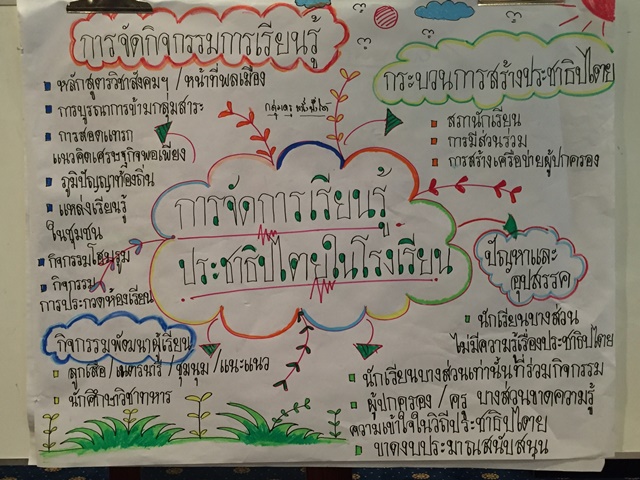 การจัดกิจกรรมการเรียนรู้
หลักสูตรวิชาสังคมฯ / หน้าที่พลเมือง
การบูรณาการข้ามกลุ่มสาระ
การสอดแทรก
แนวคิดเศรษฐกิจพอเพียง
ภูมิปัญญาท้องถิ่น
แหล่งเรียนรู้
ในชุมชน
กิจกรรมโฮมรูม
กิจกรรม
การประกวดห้องเรียน
กระบวนการสร้างประชาธิปไตย
สภานักเรียน
การมีส่วนร่วม
การสร้างเครือข่ายผู้ปกครอง
การจัดการเรียนรู้
ประชาธิปไตยในโรงเรียน
ปัญหาและ
อุปสรรค
นักเรียนบางส่วน
ไม่มีความรู้เรื่องประชาธิปไตย
นักเรียนบางส่วนเท่านั้นที่ร่วมกิจกรรม
ผู้ปกครอง / ครู บางส่วนขาดความรู้
ความเข้าใจในวิถีประชาธิปไตย
ขาดงบประมาณสนับสนุน
กิจกรรมพัฒนาผู้เรียน
ลูกเสือ / เนตรนารี / ชุมนุม / แนะแนว
นักศึกษาวิชาทหาร